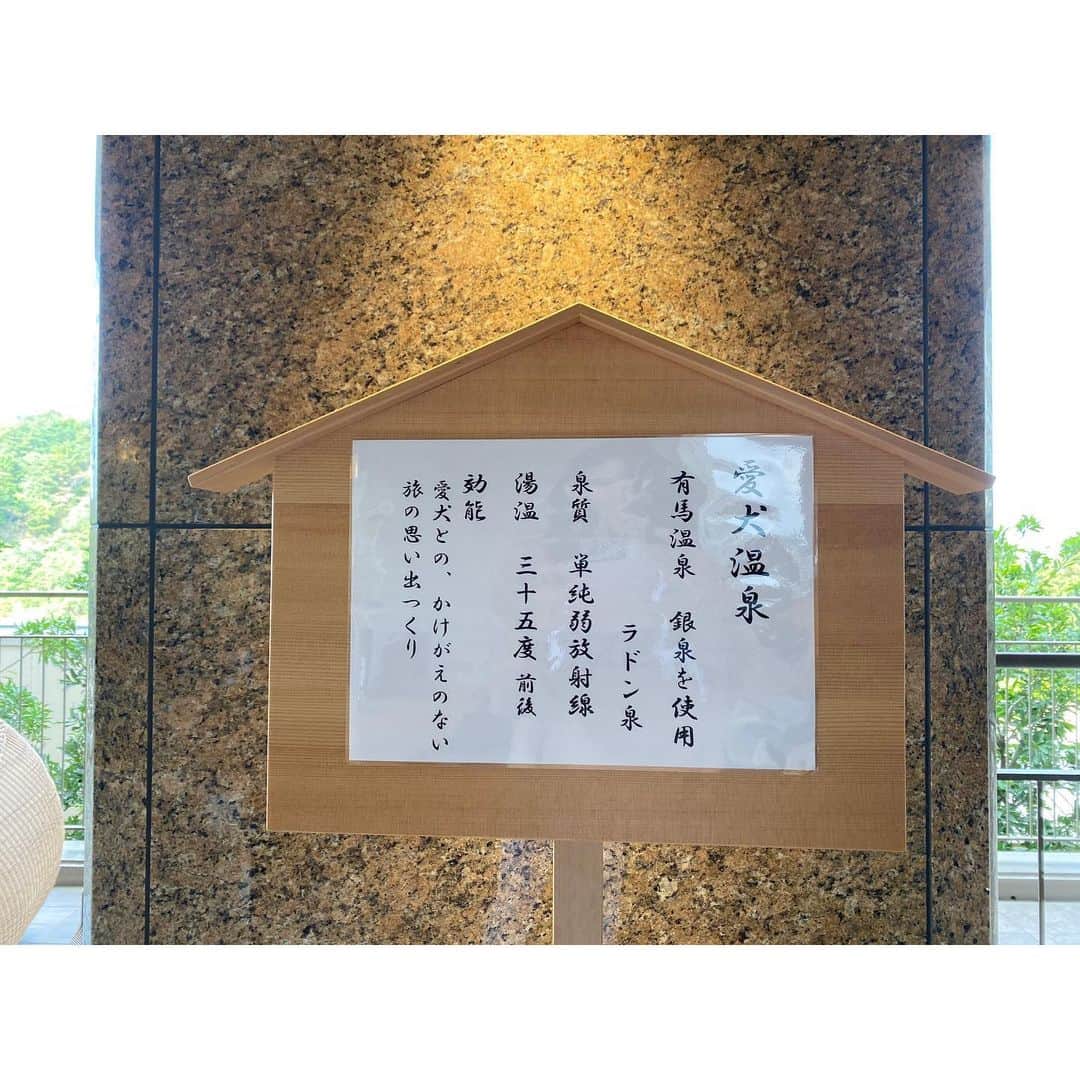 愛犬温泉
有馬温泉 銀泉を使用
ラドン泉
泉質 単純弱放射線
湯温 三十五度前後
効能
愛犬との、かけがえのない
旅の思い出つくり